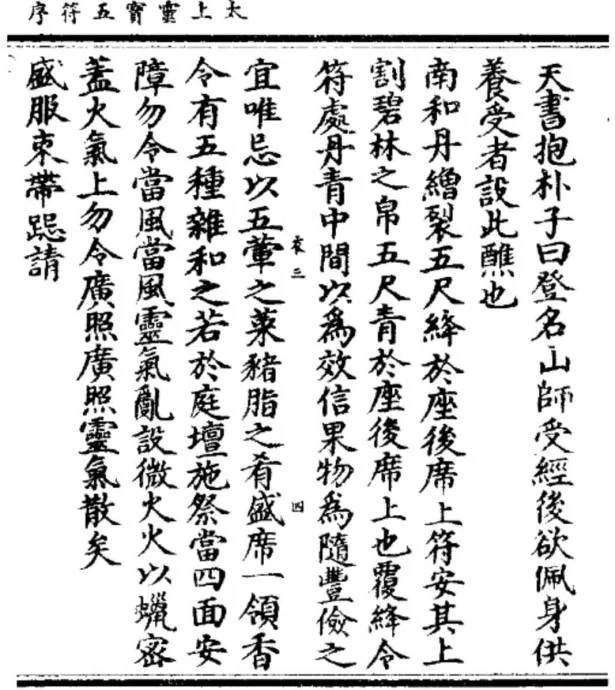 太上靈寶五符序
天書抱朴子曰登名山師受經後欲佩身供
養受者設此醮也
南和丹繒裂五尺絳於座後席上符安其上
割碧林之帛五尺青於座後席上也覆絳令
符處丹青中間以爲效信果物爲隨豐儉之
三 四
宜唯忌以五葷之菜豬脂之肴盛席一領香
令有五種雜和之若於庭壇施祭當四面安
障勿令當風當風靈氣亂設微火火以蠟密
蓋火氣上勿令廣照廣照靈氣散矣
盛服束帶跽請